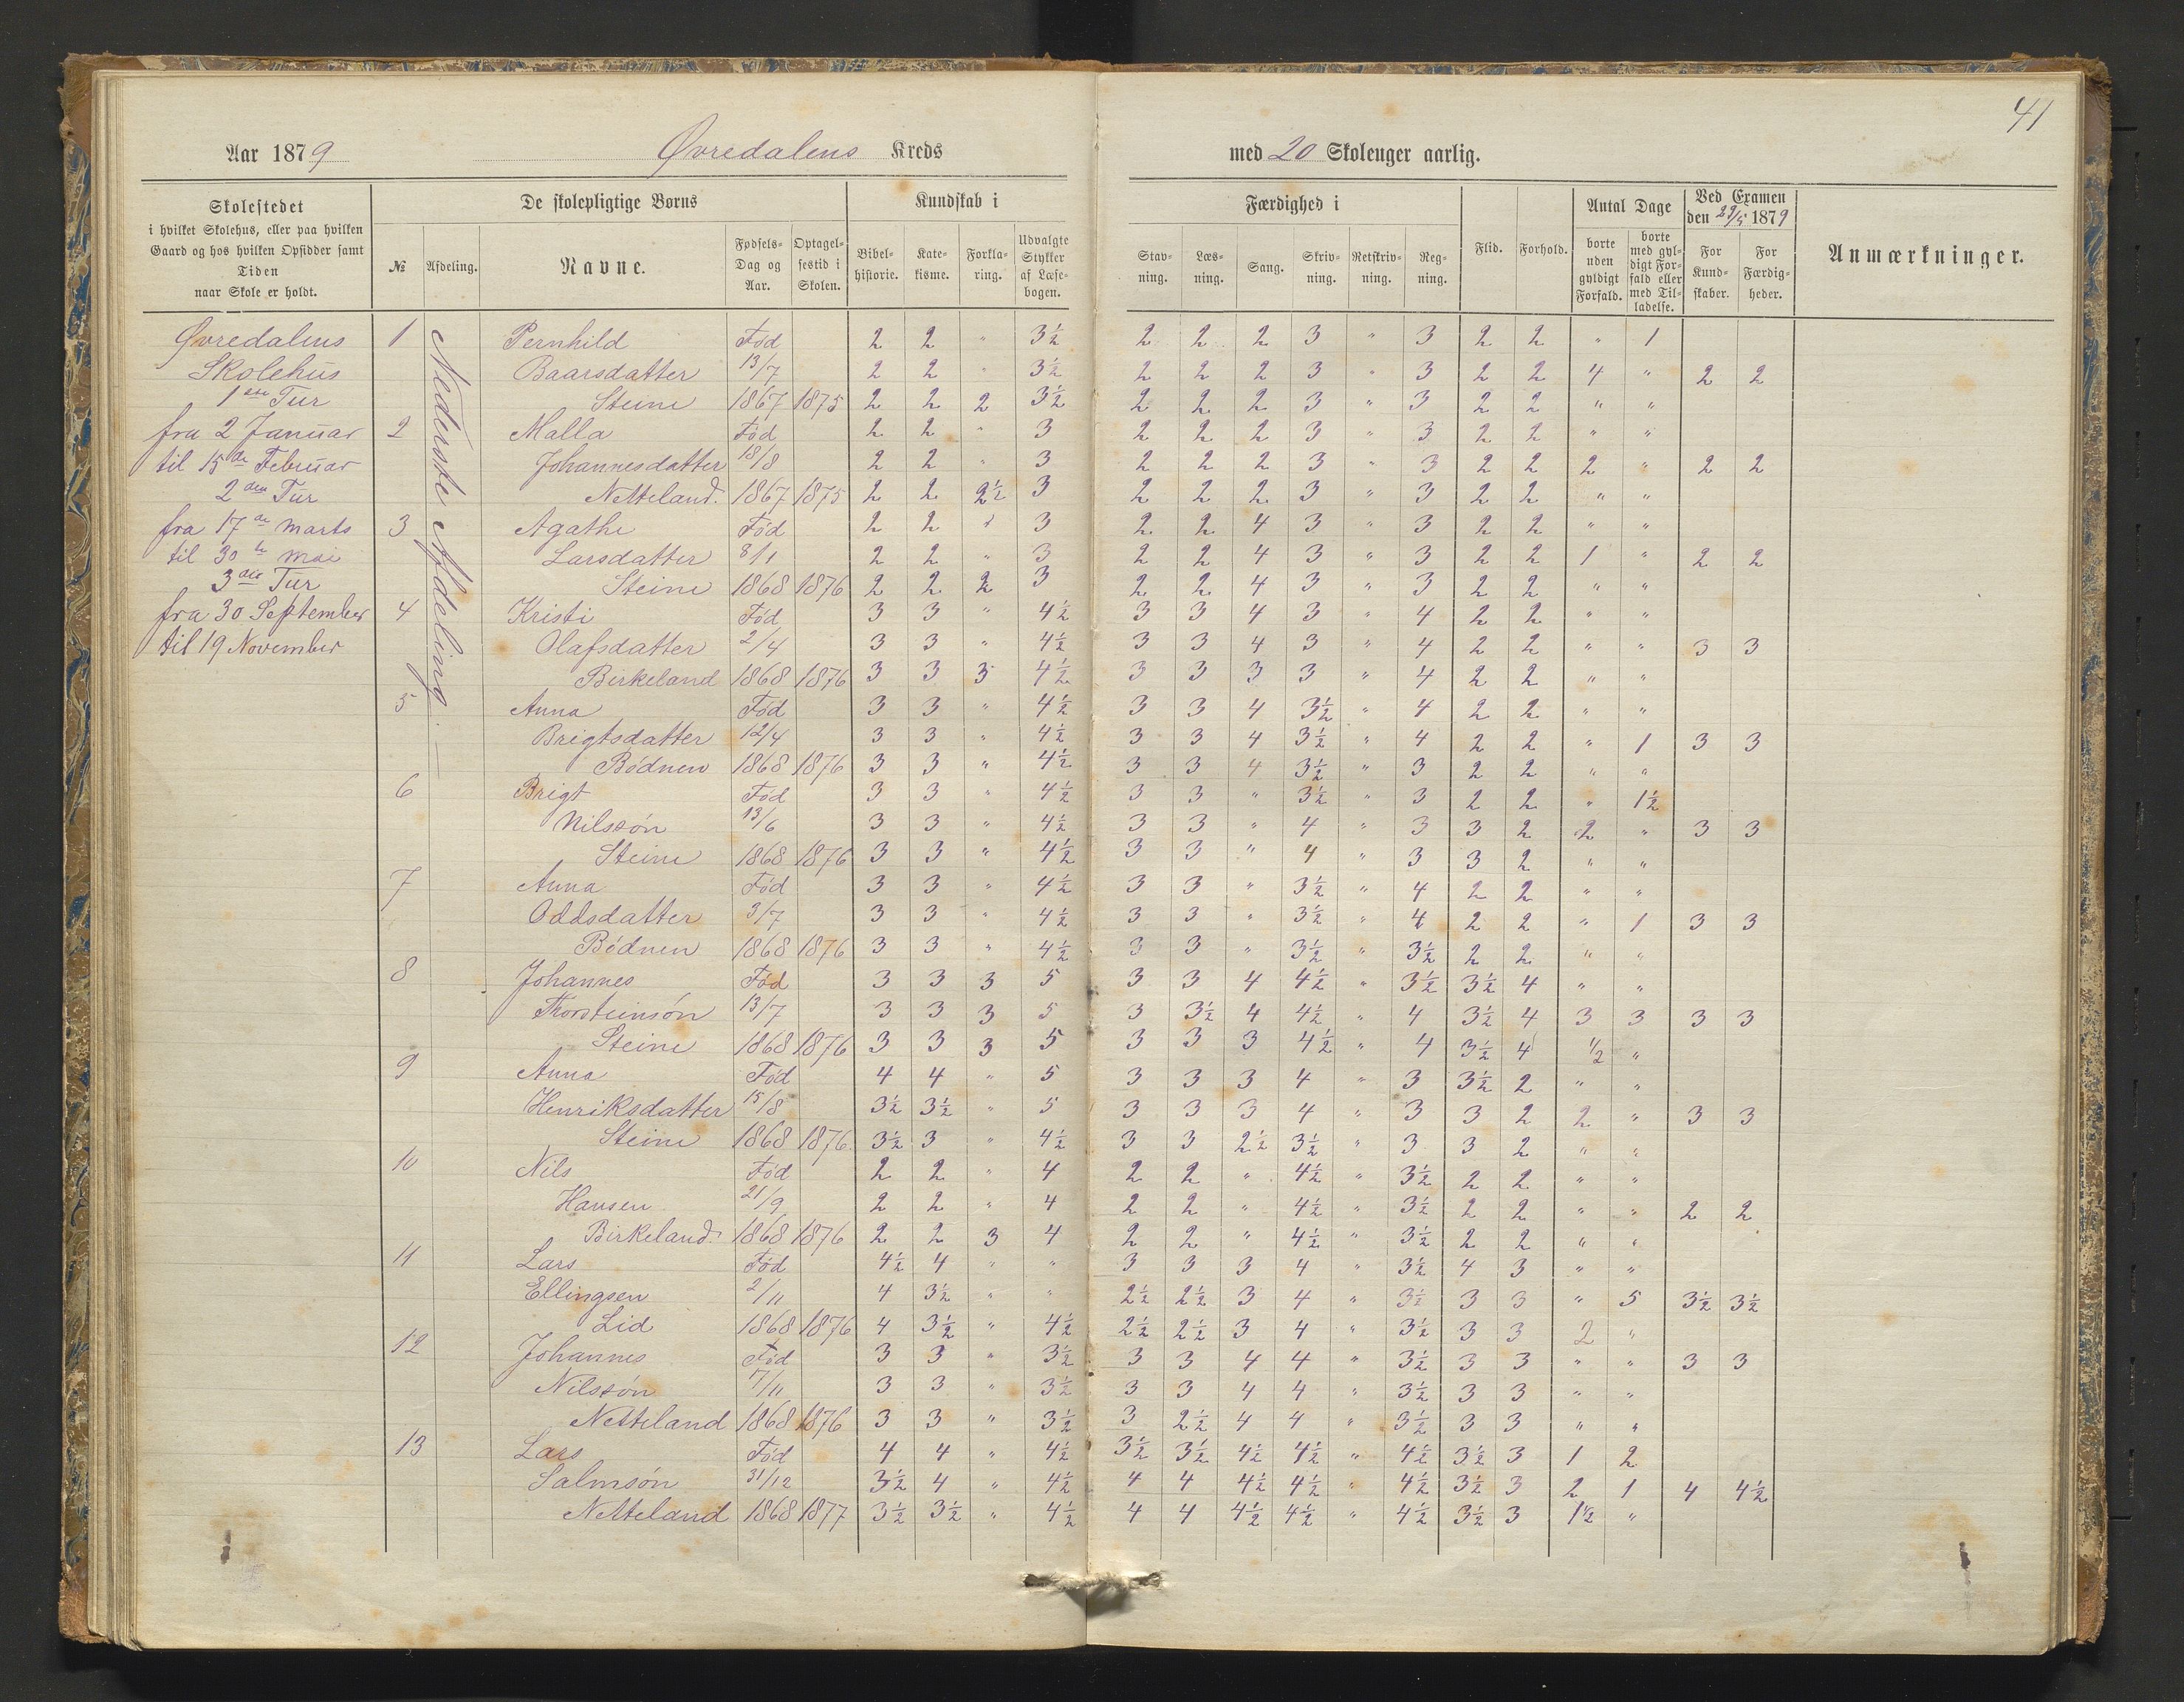 41
Aar 1879 Øvredalens Kreds med 20 Skoleuger aarlig.
Skolestedet i hvilket Skolehus, eller paa hvilken Gaard og hos hvilken Opsidder samt Tiden naar Skole er holdt.
De skolepligtige Børns
№ Afdeling. Navne. Fødsels-Dag og Aar. Optagelsestid i Skolen.
Kundskab i
Bibelhistorie. Katekisme. Forklaring. Udvalgte Stykker af Læsebogen.
Færdighed i
Stavning. Læsning. Sang. Skrivning. Retskrivning. Regning.
Flid. Forhold.
Antal Dage
borte uden gyldigt Forfald. borte med gyldigt Forfald eller med Tilladelse.
Ved Examen den 29/5 1879
For Kundskaber. For Færdigheder.
Anmærkninger.
Øvredalens
Skolehus
1ste Tur
fra 2 Januar
til 15de Februar
2den Tur
fra 17de Marts
til 30te Mai
3die Tur
fra 30 September
til 19 November
Nederste Afdeling.
1 Pernhild Fød 2 2 " 3½ 2 2 2 3 " 3 2 2 " 1
Baarsdatter 13/7 2 2 " 3½ 2 2 2 3 " 3 2 2 4 " 2 2
Steine 1867 1875 2 2 2 3½ 2 2 2 3 " 3 2 2 " "
2 Malla Fød 2 2 " 3 2 2 2 3 " 3 2 2 " "
Johannesdatter 18/8 2 2 " 3 2 2 2 3 " 3 2 2 2 " 2 2
Netteland. 1867 1875 2 2 2½ 3 2 2 2 3 " 3 2 2 " "
3 Agathe Fød 2 2 " 3 2 2 4 3 " 3 2 2 " "
Larsdatter 8/1 2 2 " 3 2 2 4 3 " 3 2 2 1 " 2 2
Steine 1868 1876 2 2 2 3 2 2 4 3 " 3 2 2 " "
4 Kristi Fød 3 3 " 4½ 3 3 4 3 " 4 2 2 " "
Olafsdatter 2/4 3 3 " 4½ 3 3 4 3 " 4 2 2 " " 3 3
Birkeland 1868 1876 3 3 3 4½ 3 3 3 3 " 4 2 2 " "
5 Anna Fød 3 3 " 4½ 3 3 4 3½ " 4 2 2 " "
Brigtsdatter 12/4 3 3 " 4½ 3 3 4 3½ " 4 2 2 " 1 3 3
Bødnen 1868 1876 3 3 " 4½ 3 3 4 3½ " 3 2 2 " "
6 Brigt Fød 3 3 " 4½ 3 3 " 3½ " 3 2 2 " 1½
Nilssøn 13/6 3 3 " 4½ 3 3 " 4 " 3 3 2 2 " 3 3
Steine 1868 1876 3 3 " 4½ 3 3 " 4 " 3 3 2 " "
7 Anna Fød 3 3 " 4½ 3 3 " 3½ " 4 2 2 " "
Oddsdatter 3/7 3 3 " 4½ 3 3 " 3½ " 4 2 2 " 1 3 3
Bødnen 1868 1876 3 3 " 4½ 3 3 " 3½ " 3½ 2 2 " "
8 Johannes Fød 3 3 3 5 3 3 4 4½ " 3½ 3½ 4 " "
Thorsteinsøn 13/7 3 3 3 5 3 3½ 4 4½ " 4 3½ 4 3 3 3 3
Steine 1868 1876 3 3 3 5 3 3 3 4½ " 4 3½ 4 ½ "
9 Anna Fød 4 4 " 5 3 3 3 4 " 3 3½ 2 " "
Henriksdatter 15/8 3½ 3½ " 5 3 3 3 4 " 3 3 2 2 " 3 3
Steine 1868 1876 3½ 3 " 4½ 3 3 2½ 3½ " 3 3 2 " "
10 Nils Fød 2 2 " 4 2 2 " 4½ " 3½ 2 2 " "
Hansen 21/9 2 2 " 4 2 2 " 4½ " 3½ 2 2 " " 2 2
Birkeland 1868 1876 2 2 3 4 2 2 " 4½ " 3½ 2 2 " "
11 Lars Fød 4½ 4 " " 3 3 3 4 " 3½ 4 3 " "
Ellingsen 2/11 4 3½ " " 2½ 2½ 3 4 " 3½ 3 3 " 5 3½ 3½
Lid 1868 1876 4 3½ " 4½ 2½ 2½ 3 4 " 3½ 3 3 2 "
12 Johannes Fød 3 3 " 3½ 3 3 4 4 " 3½ 3 3 " " 3 3
Nilssøn 7/11 3 3 " 3½ 3 3 4 4 " 3½ 3 3 " "
Netteland 1868 1876 3 3 " 3½ 3 2½ 4 4 " 3½ 3 3 " "
13 Lars Fød 4 4 " 4½ 3½ 3½ 4½ 4½ " 4½ 3½ 3 1 2
Salmsøn 31/12 3½ 4 " 4½ 4 4 4½ 4½ " 4½ 3½ 3 2 1 4 4½
Netteland 1868 1877 3½ 3½ " 4½ 4 4 4½ 4½ " 4½ 3½ 3 1½ "